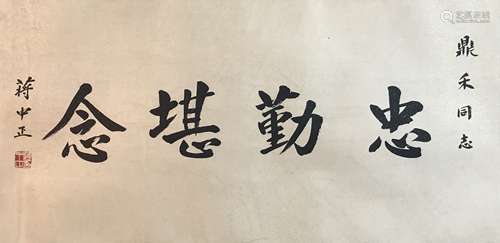 鼎禾同志
忠勤堪念
蒋中正